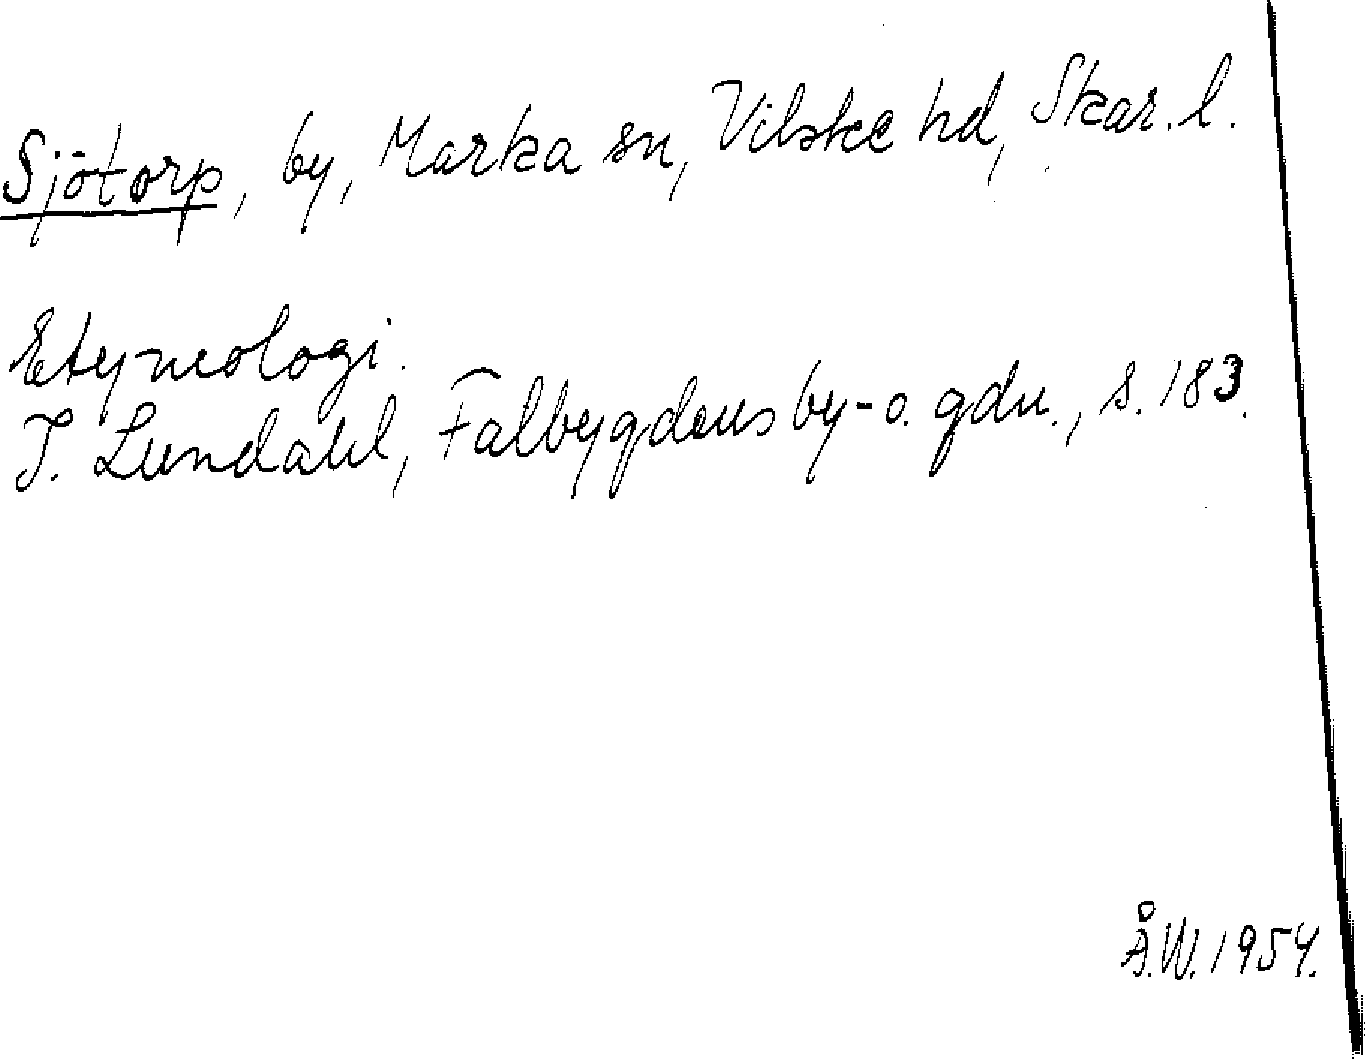 Sjötorp, by, Marka sn, Vilske hd, Skar. l.
Etymologi.
I. Lundahl, Falbygdens by- o. gdn., s. 183.
Å.W. 1954.